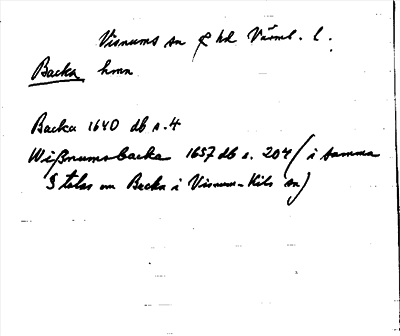 Visnums sn hd Värml. l.
Backa hmn
Backa 1640 db s. 4
Wißnumsbacka 1657 db s. 204 (i samma
§ talas om Backa i Visnum-Kils sn)